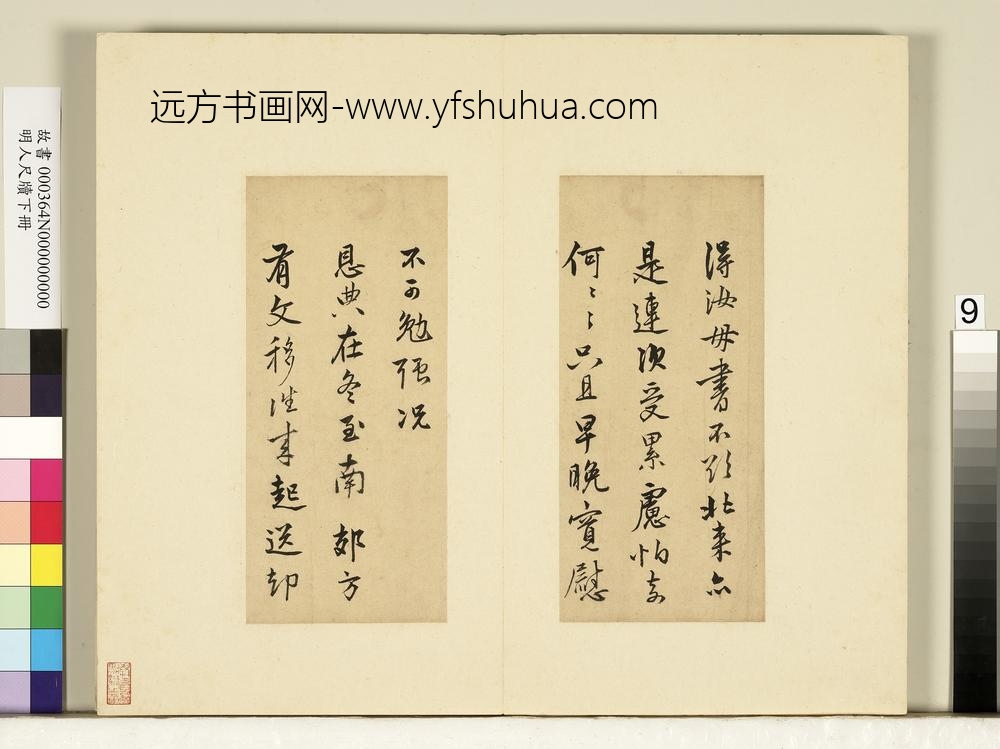 远方书画网-www.yfshuhua.com
得汝母書不欲北来亦
是連次受累慮怕奈
何〻〻只且早晚寬慰
不可勉强况
恩典在冬至南 郊方
有文移往来起送却
故書 000364N000000000
明人尺牘下冊
9